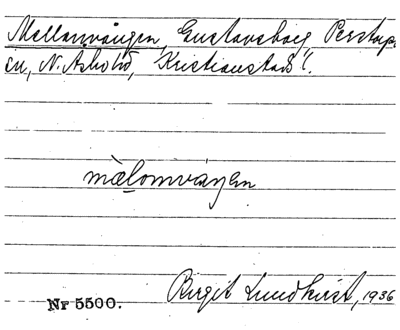 Mellanvången, Gustavsborg, Perstorps
sn, N. Åsbo hd, Kristianstads l.
mælomváŋen
Birgit Lundkvist, 1936
Nr 5500.